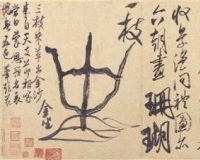 收景溫問禮圖亦
六朝畫珊瑚
一枝
金坐
三枝朱草出金沙
來自天支節相家
當日蒙恩預名表
愧無五色筆頭花